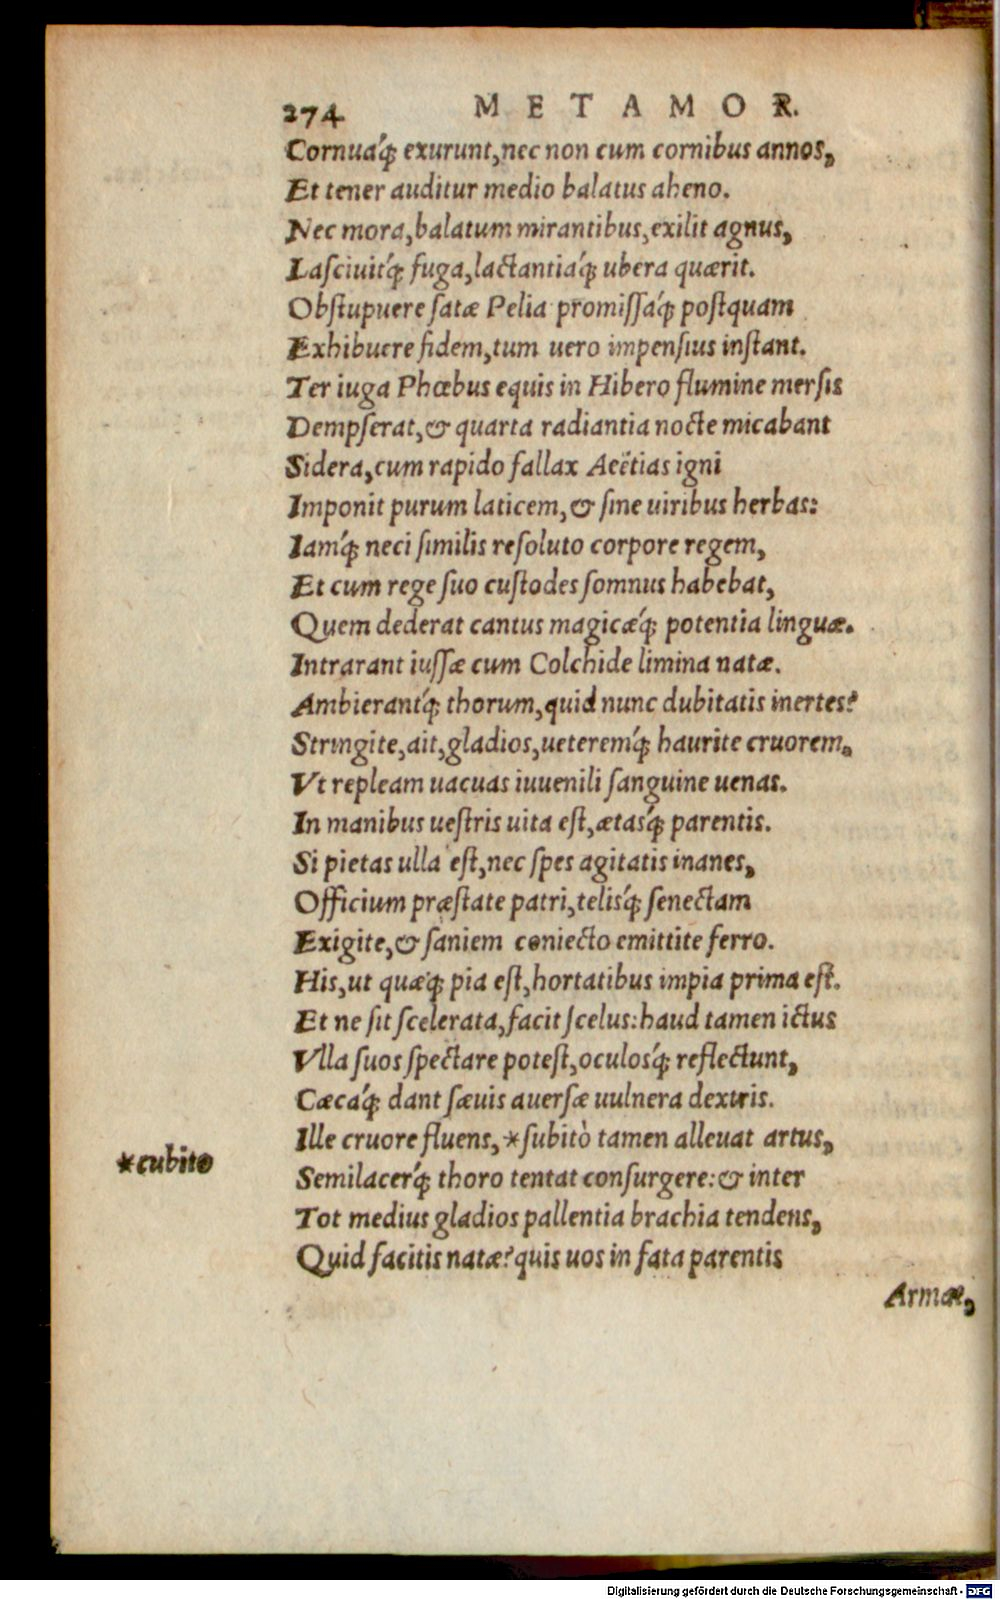 274 METAMOR.
Cornuáq; exurunt, nec non cum cornibus annos,
Et tener auditur medio balatus aheno.
Nec mora, balatum mirantibus, exilit agnus,
Laſciuitq́; fuga, lactantiaq́; ubera quærit.
Obſtupuere ſatæ Pelia promiſſaq́; poſtquam
Exhibuere fidem, tum uero impenſius inſtant.
Ter iuga Phœbus equis in Hibero flumine mersis
Dempſerat, & quarta radiantia nocte micabant
Sidera, cum rapido fallax Aeëtias igni
Imponit purum laticem, & ſine uiribus herbas:
Iamq́; neci ſimilis reſoluto corpore regem,
Et cum rege ſuo cuſtodes ſomnus habebat,
Quem dederat cantus magicæq́; potentia linguæ.
Intrarant iuſſæ cum Colchide limina natæ.
Ambierantq́; thorum, quid nunc dubitatis inertes?
Stringite, ait, gladios, ueteremq́; haurite cruorem,
Vt repleam uacuas iuuenili ſanguine uenas.
In manibus ueſtris uita eſt, ætasq́; parentis.
Si pietas ulla eſt, nec ſpes agitatis inanes,
Officium præſtate patri, telisq́; ſenectam
Exigite, & ſaniem coniecto emittite ferro.
His, ut quæq; pia eſt, hortatibus impia prima eſt.
Et ne ſit ſcelerata, facit ſcelus: haud tamen ictus
Vlla ſuos ſpectare poteſt, oculosq́; reflectunt,
Cæcaq́; dant ſæuis auerſæ uulnera dextris.
Ille cruore fluens, *ſubitò tamen alleuat artus,
*cubito
Semilacerq́; thoro tentat conſurgere: & inter
Tot medius gladios pallentia brachia tendens,
Quid facitis natæ? quis uos in fata parentis
Armæ,
Digitalisierung gefördert durch die Deutsche Forschungsgemeinschaft - DFG